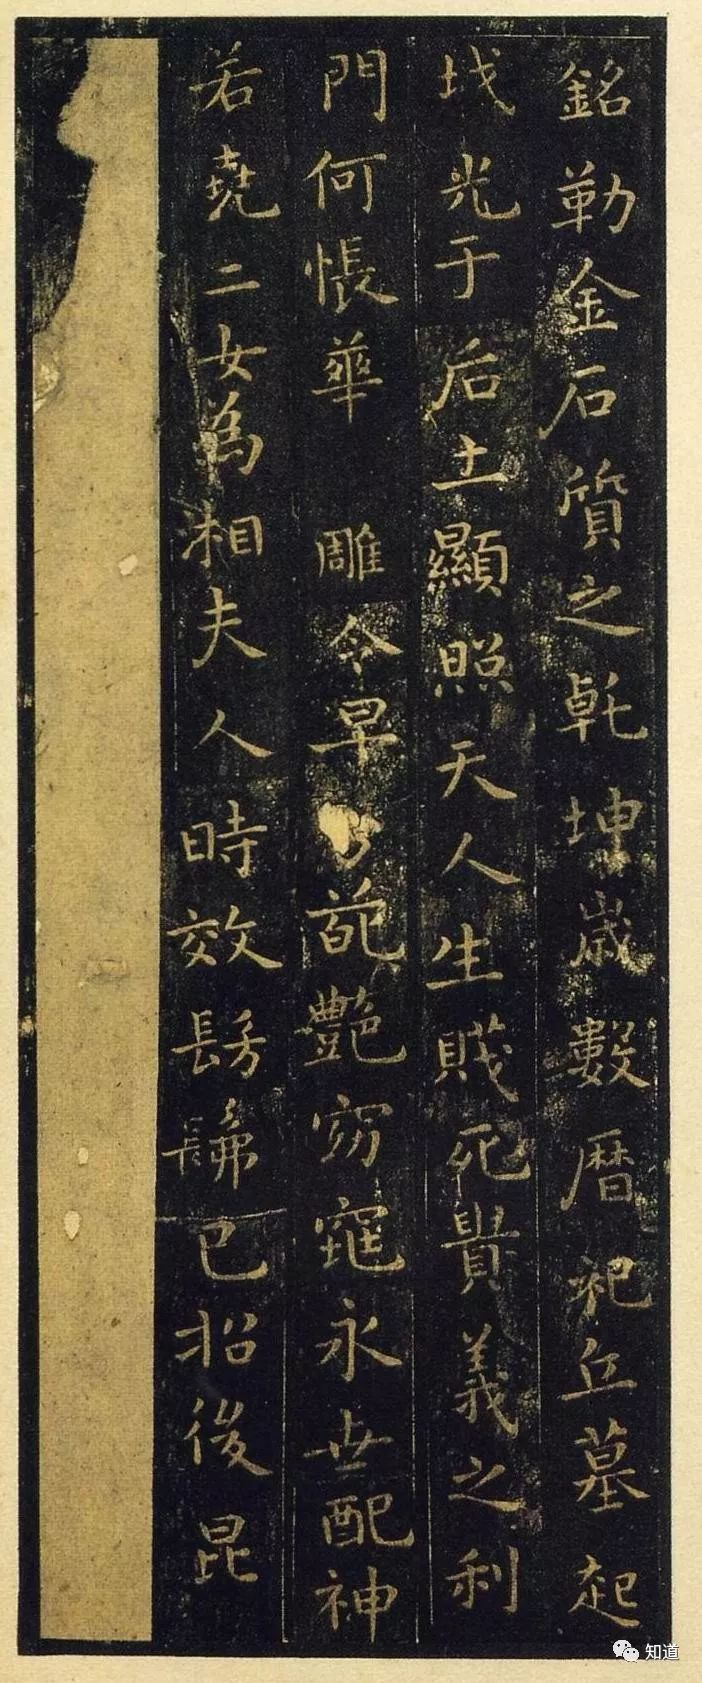 銘勒金石質之乾坤歲數暦祀丘墓起
坟光于后土顯照天人生賤死貴義之利
門何悵華 雕令早葩艷窈窕永世配神
若堯二女為相夫人時效髣髴已招後昆
知道